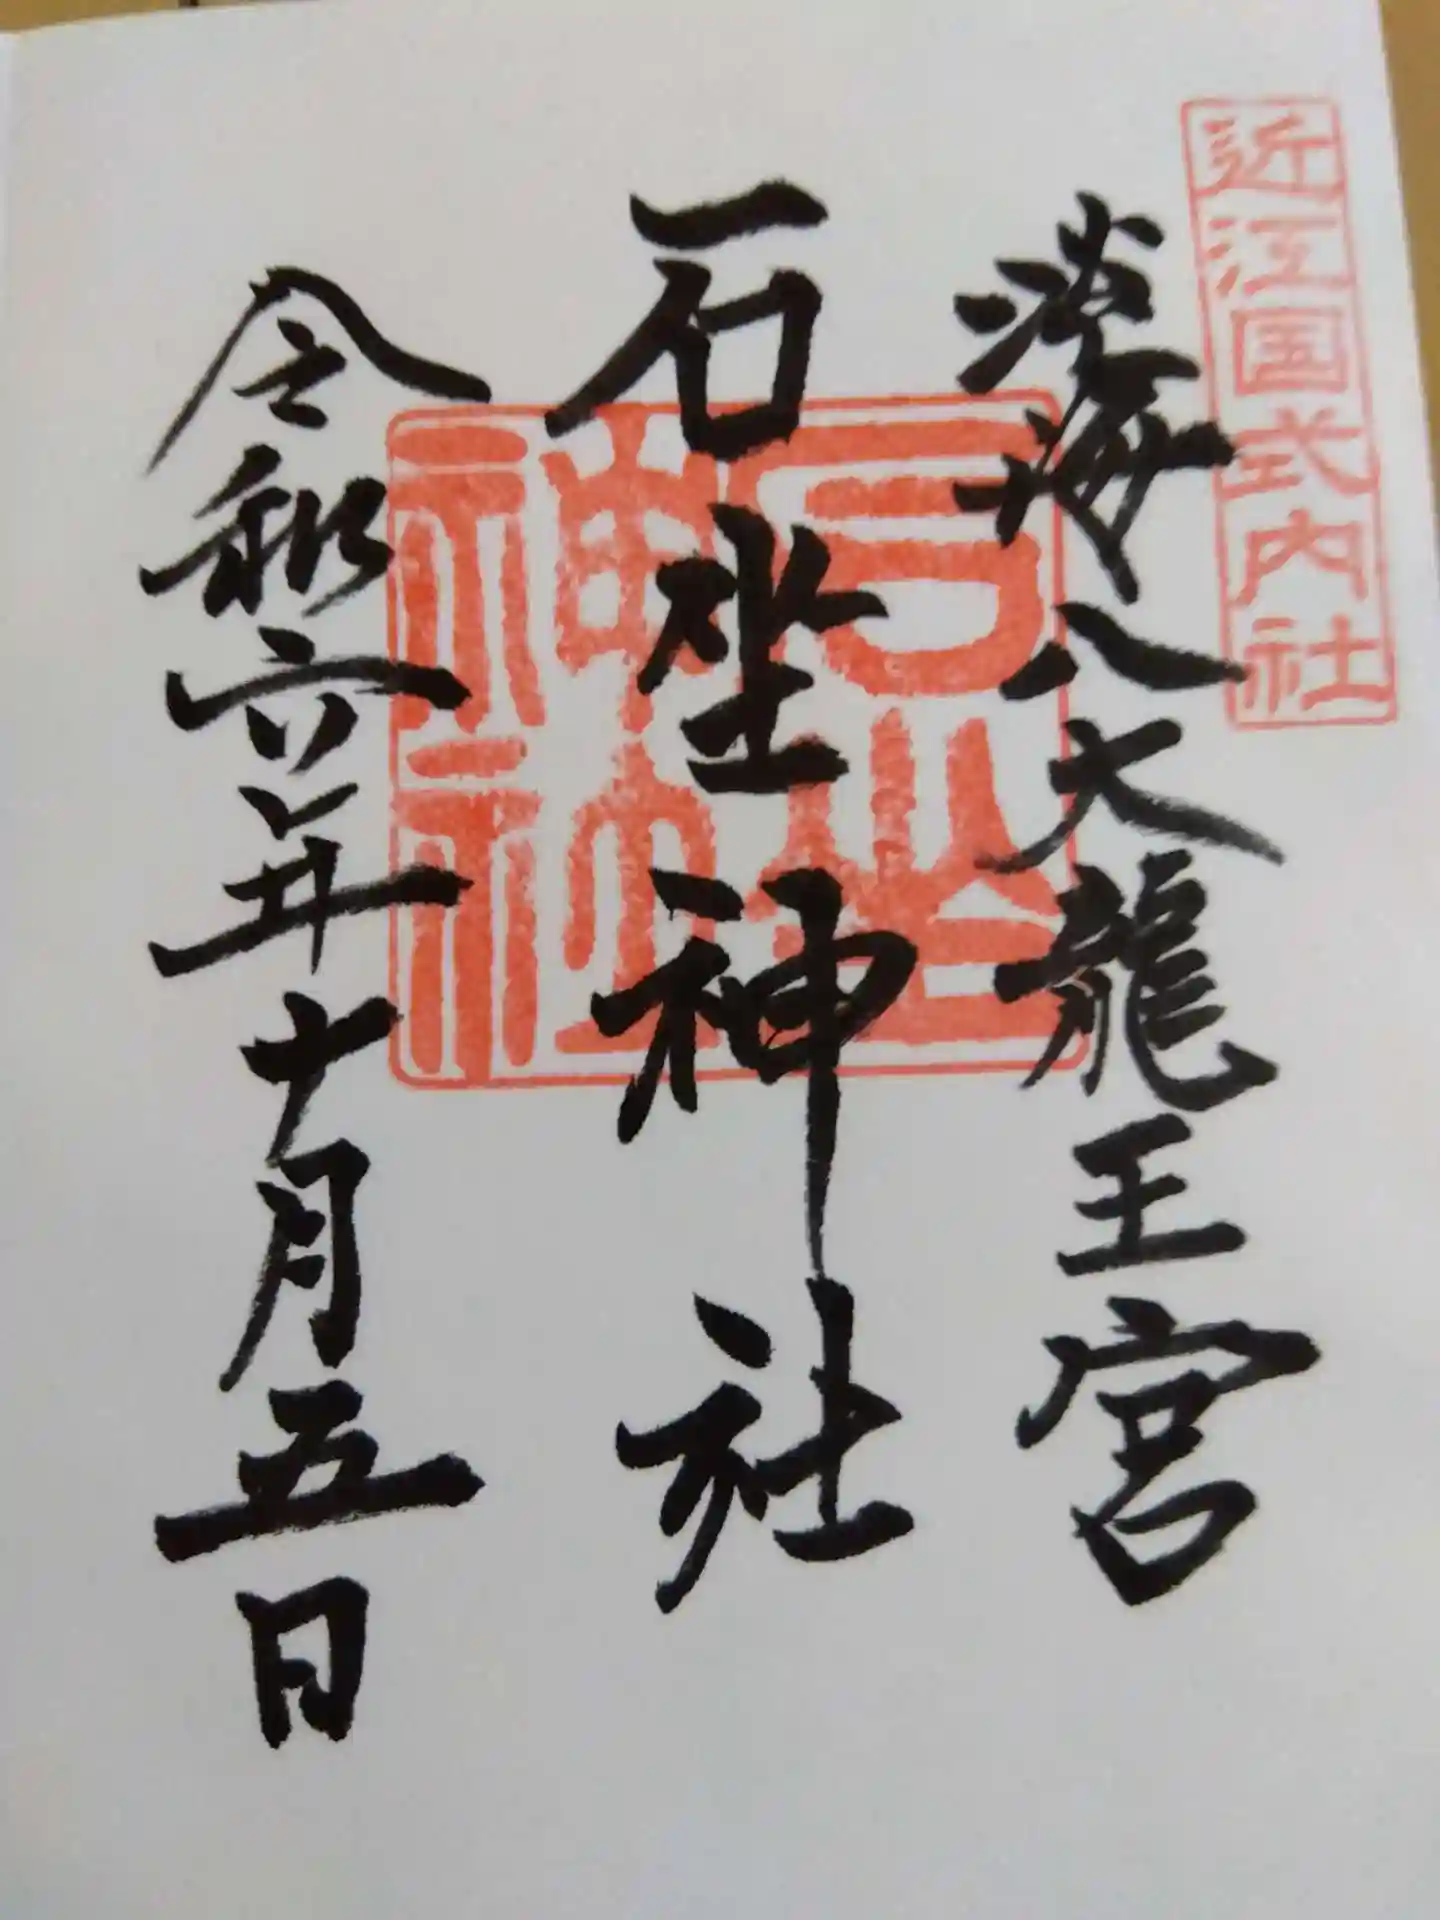 近江国式内社
滄海八大龍王宮
石坐神社
令和六年十月五日
石坐神社